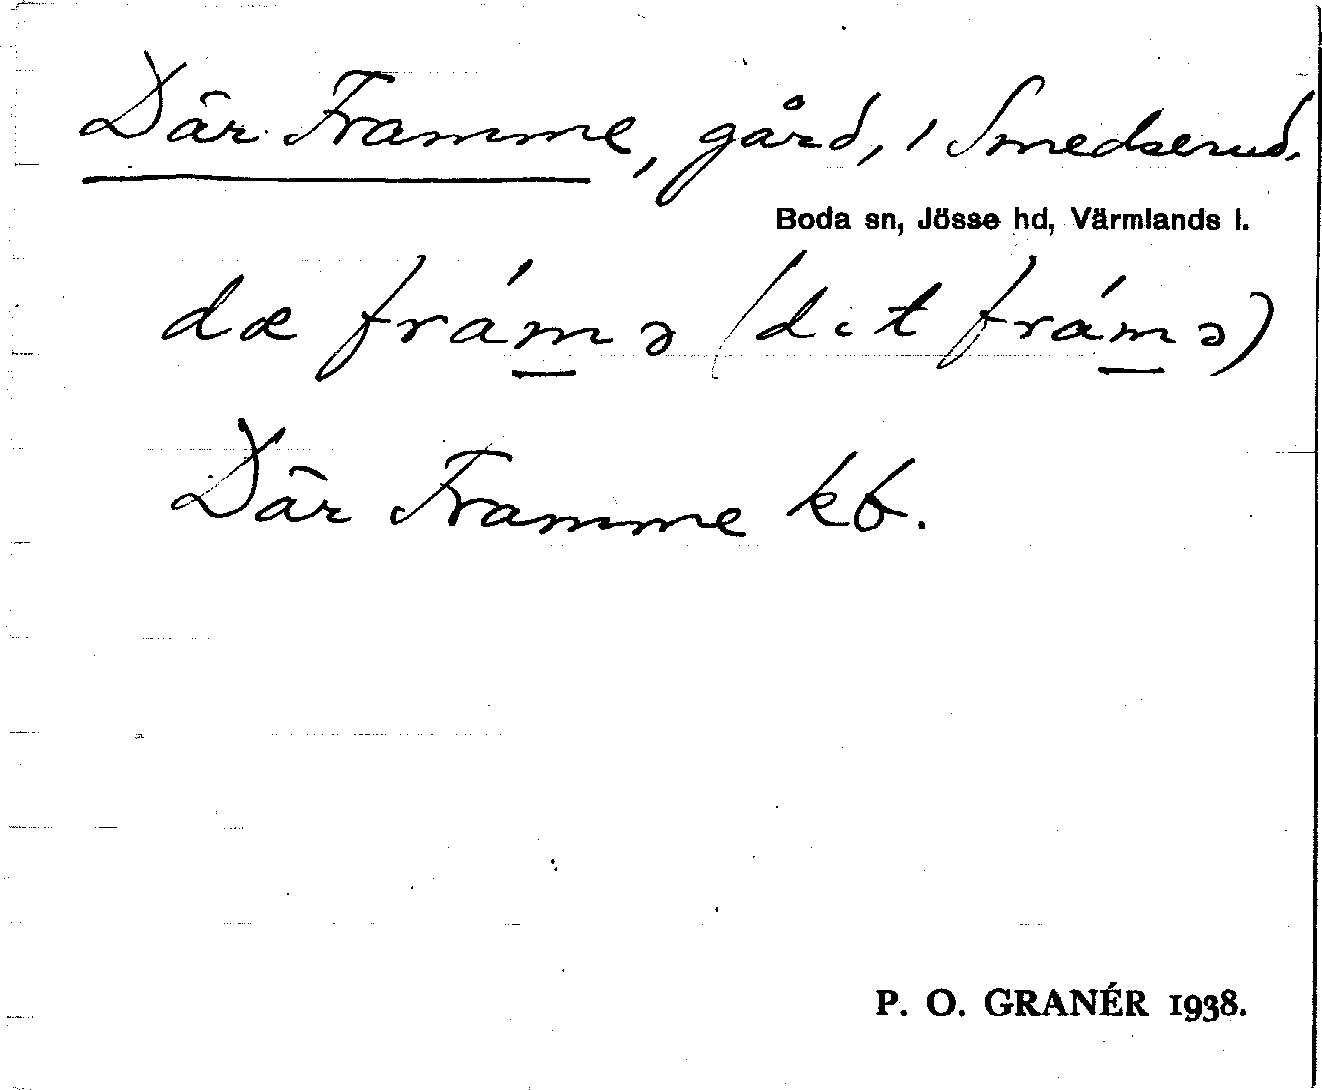 Där Framme, gård, i Smedserud.
Boda sn, Jösse hd, Värmlands l.
dæ frámə (dit frámə)
Där Framme kb.
P. O. GRANÉR 1938.